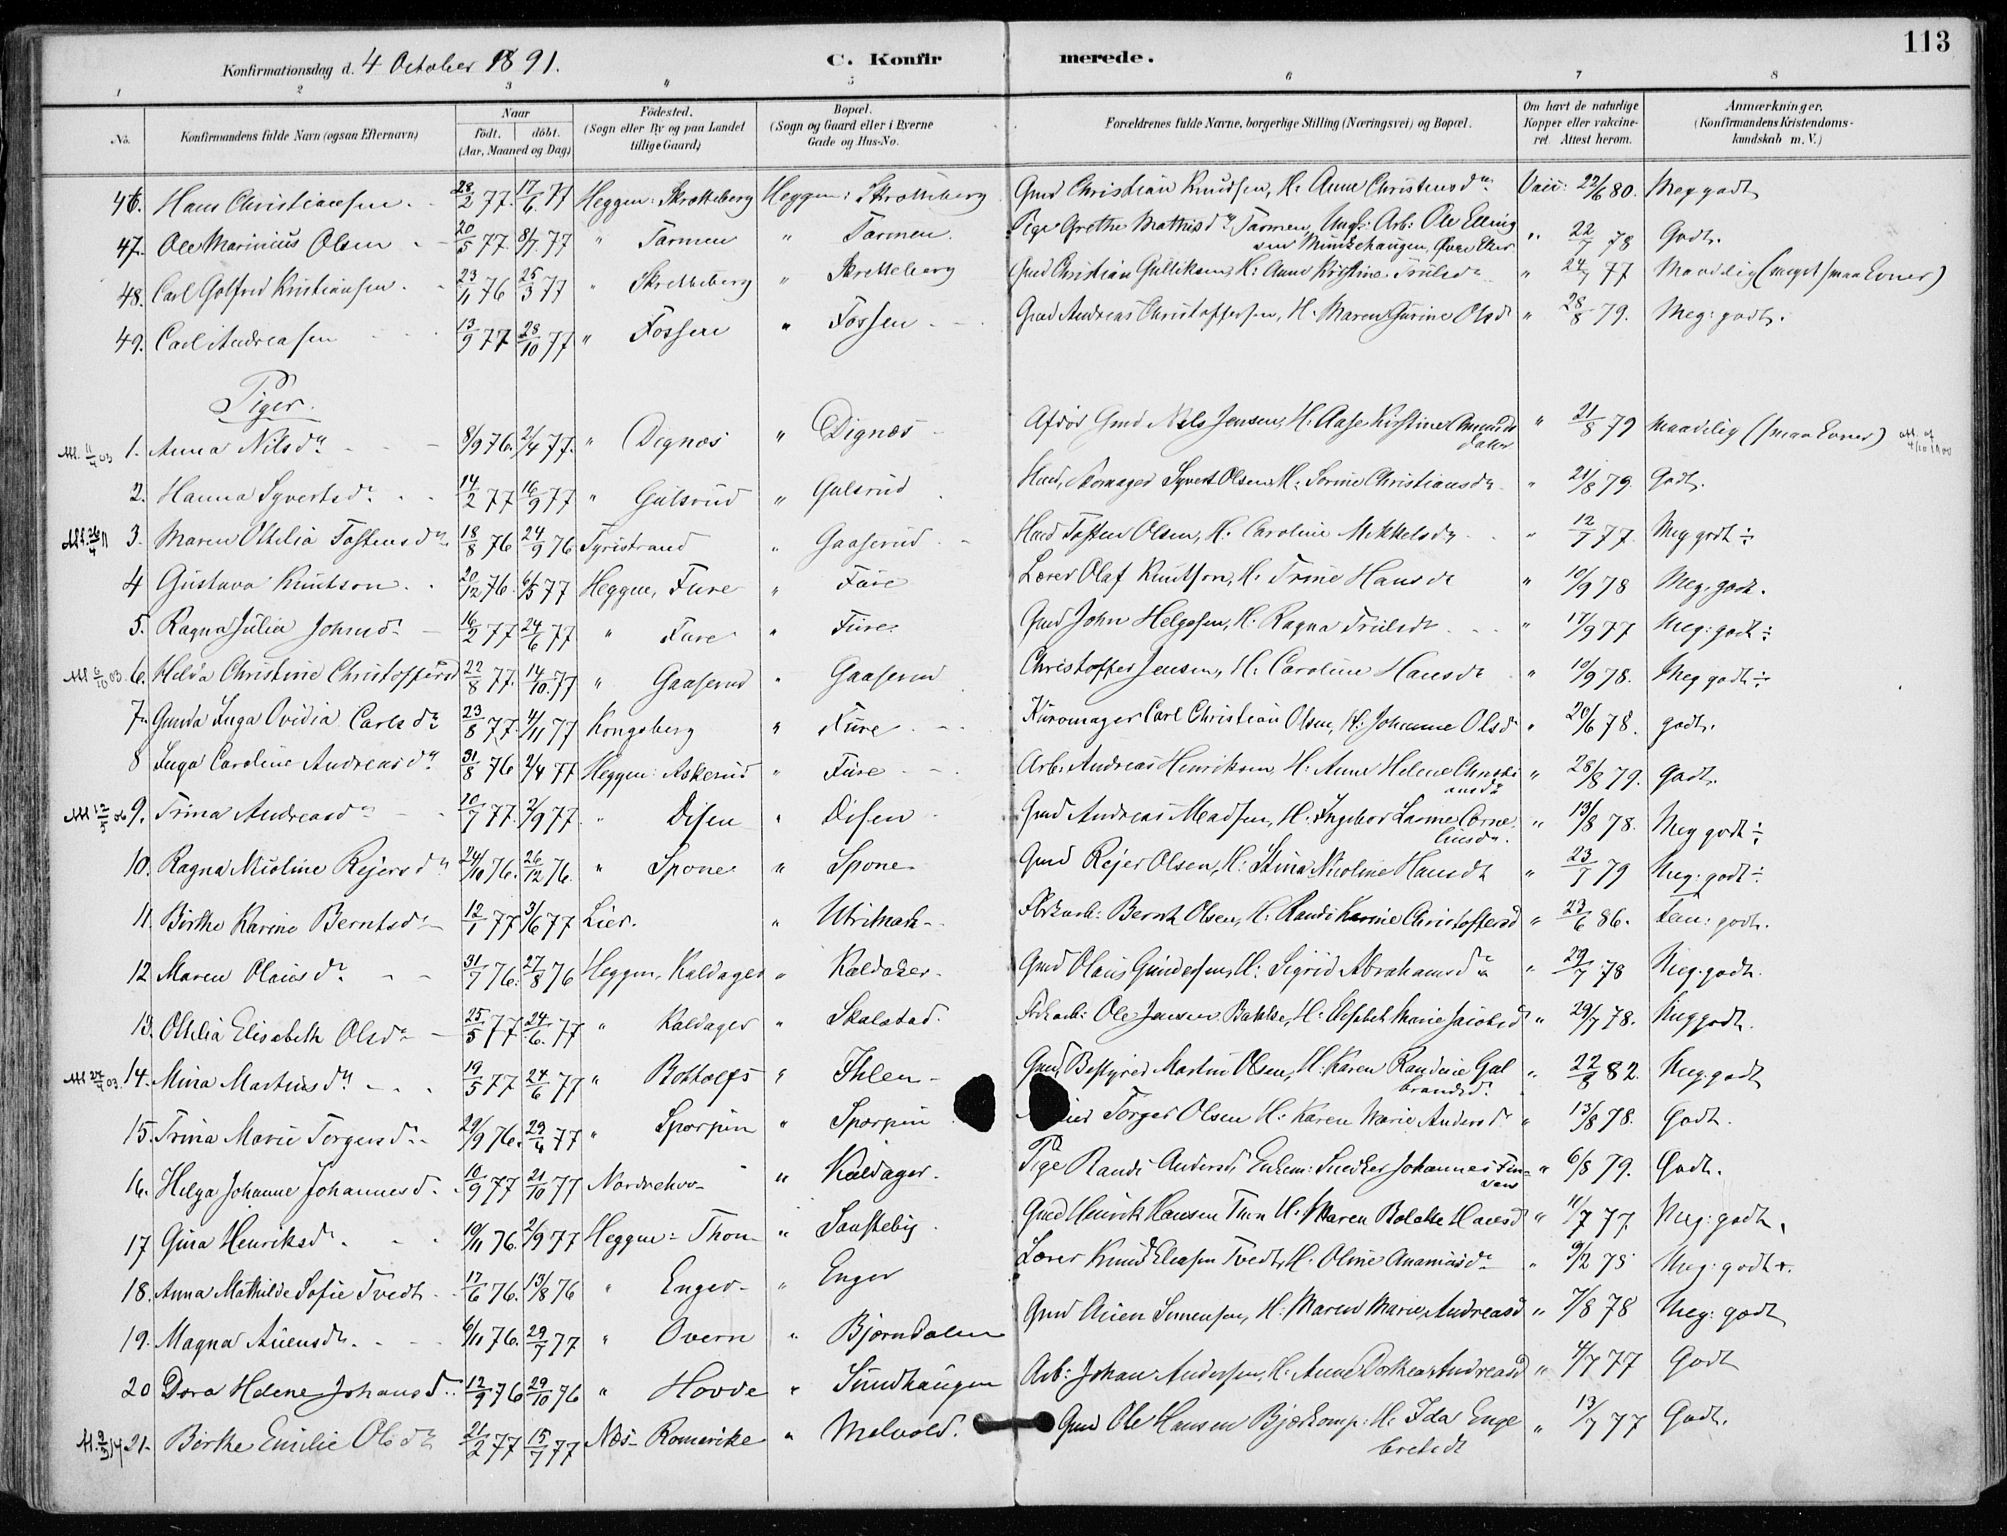 113
Konfirmationsdag d. 4 October 1891. C. Konfirmerede.
1 2 3 4 5 6 7 8
No. Konfirmandens fulde Navn (ogsaa Efternavn) Naar födt. döbt. (Aar, Maaned og Dag) Födested. (Sogn eller By og paa Landet tillige Gaard) Bopæl. (Sogn og Gaard eller i Byerne Gade og Hus-No. Forældrenes fulde Navne, borgerlige Stilling (Næringsvei) og Bopæl. Om havt de naturlige Kopper eller vakcineret. Attest herom. Anmærkninger. (Konfirmandens Kristendomskundskab m. V.)
46. Hans Christiansen. 28/2 77. 17/6 77 Heggen: Skrætteberg Heggen: Skrætteberg Gmd Christian Knudsen, H. Anne Christensdr Vacc: 22/6 80. Meg godt
47. Ole Marinius Olsen 20/5 77. 8/7 77 " Tarmen " Tarmen. Pige Grethe Mathisdr Tarmen, Ungk: Arb: Ole Ellingsen Munkehaugen, Øvre Eker " 22/7 78 Godt.
48. Carl Gotfred Kristiansen. 23/11 76 25/3 77 " Skretteberg " Skretteberg Gmd Christian Gulliksen, H: Anne Kristine Trulsdr " 24/7 77 Maadelig (meget smaa Evner)
49. Carl Andreasen 13/9 77 28/10 77 " Fossen " Fossen Gmd Andreas Christoffersen, H. Maren Gurine Olsdr " 28/8 79. Meg: godt.
Piger.
Att. 11/4 03 1. Anna Nilsdr 8/9 76. 2/4 77. " Dignæs " Dignæs Afdøe Gmd Nils Jensen, H. Aase Kirstine Amundsdatter " 21/8 79 Maadelig (smaa Evner) att. af 4/10 1900
2. Hanna Syvertsdr 14/2 77 16/9 77 " Gulsrud " Gulsrud Skomager Syvert Olsen, H: Sorine Christiansdr " 21/8 79. Godt.
3. Maren Othilia Tostensdr 18/8 76 24/9 76 Tyristrand " Gaaserud Tosten Olsen, H. Caroline Mikkelsdr " 12/7 77 Meg godt ÷
4 Gustava Knutson. 20/12 76. 6/5 77 Heggen, Fure " Fure Lærer Olaf Knutson, H. Trine Hansdr " 10/9 78 Meg. godt.
5. Ragna Julia Johnsdr 16/2 77 24/6 77 " Fure " Fure. Gmd John Helgesen, H. Ragna Trulsdr " 17/9 77 Meg: godt ÷
Att 6/10 03. 6. Helda Christine Christoffersd 22/8 77. 14/10. 77 " Gaaserud " Gaaserud Christoffer Jensen, H. Caroline Hansdr " 10/9 78. Meg godt ÷
7. Gunda Inga Ovidia Carlsdr 23/8 77. 4/11 77 Kongsberg " Fure Kurvmager Carl Christian Olsen, H: Johanne Olsdr " 20/6 78. godt.
8 Inga Caroline Andreasdr 31/8 76 2/4 77 Heggen: Askerud " Fure Arb: Andreas Henriksen, H. Anne Helene Christiansdr " 28/8 79. Godt.
Att 12/5 06 9. Trina Andreasdr 20/7 77. 2/9 77. " Disen " Disen Gmd Andreas Madsen, H. Ingebor Larine Corneliusdr. " 13/8 78. Meg godt ÷
10. Ragna Nicoline Rejersdr 24/10 76. 26/12 76. " Spone " Spone Gmd Rejer Olsen, H: Stina Nicoline Hansdt " 23/7 79 Meg: godt ÷
11. Birthe Karine Berntsdr 12/1 77 3/6 77 Lier. " Bernt Olsen, H. Randi Karine Christoffersd " 23/6 86. Tem: godt.
12 Maren Olausdr 31/7 76. 27/8 76 Heggen, Kaldager " Kaldager Gmd Olaus Gundersen, H: Sigrid Abrahamsdr " 29/7 78 Meg: godt.
13. Othilia Elisabeth Olsdr 25/5 77 24/6. 77 " Kaldager " Skalstad. Ole Jensen Bakke, H. Elisabet Marie Jacobsd " 29/7 78. Meg godt.
Att 27/4 03. 14. Mina Martinsdr 19/5 77 24/6 77 " Bottolfs " Ihlen Gmd, Bestyrer Martin Olsen, H. Karen Randine Gulbrandsd. " 22/8 82. Meg: godt
15. Trina Marie Torgersdr 29/9 76. 29/4 77 " Sporpin " Sporpin Torger Olsen H. Karen Marie Andersd. " 13/8 78. Godt.
16. Helga Johanne Johannesd. 10/9 77 21/10 77 Norderhov " Kaldager. Pige Randi Andersd, Enkem: Snedker Johannes " 6/8 79. Godt.
17 Gina Henriksdr. 19/11 76. 2/9 77 Heggen: Thon " Saasteby Gmd Henrik Hansen Thon H. Maren Bolette Hansd " 11/7 77 Meg: godt.
18. Anna Mathilde Sofie Tvedt 17/6 76. 13/8 76 " Enger " Enger Lærer Knud Eliasen Tvedt, H. Oline Ananiasdr " 9/2 78 Meg: godt +.
19. Magna Auensdr. 6/11 76. 29/7 77 " Overn " Bjørndalen Gmd Auen Simensen, H. Maren Marie Andreasd " 7/8 78 Meg: godt
20 Dora Helene Johansd. 12/9 76 29/10 76 " Hovde " Sundhaugen Arb: Johan Andersen, H. Anne Dorthea Andreasd " 4/7 77 Godt
21. Birthe Emilie Olsdr 21/2 77 15/7 77 Næs Romerike " Melvold. Gmd Ole Hansen H. Ida Engebretsdt " 13/7 77 Godt.